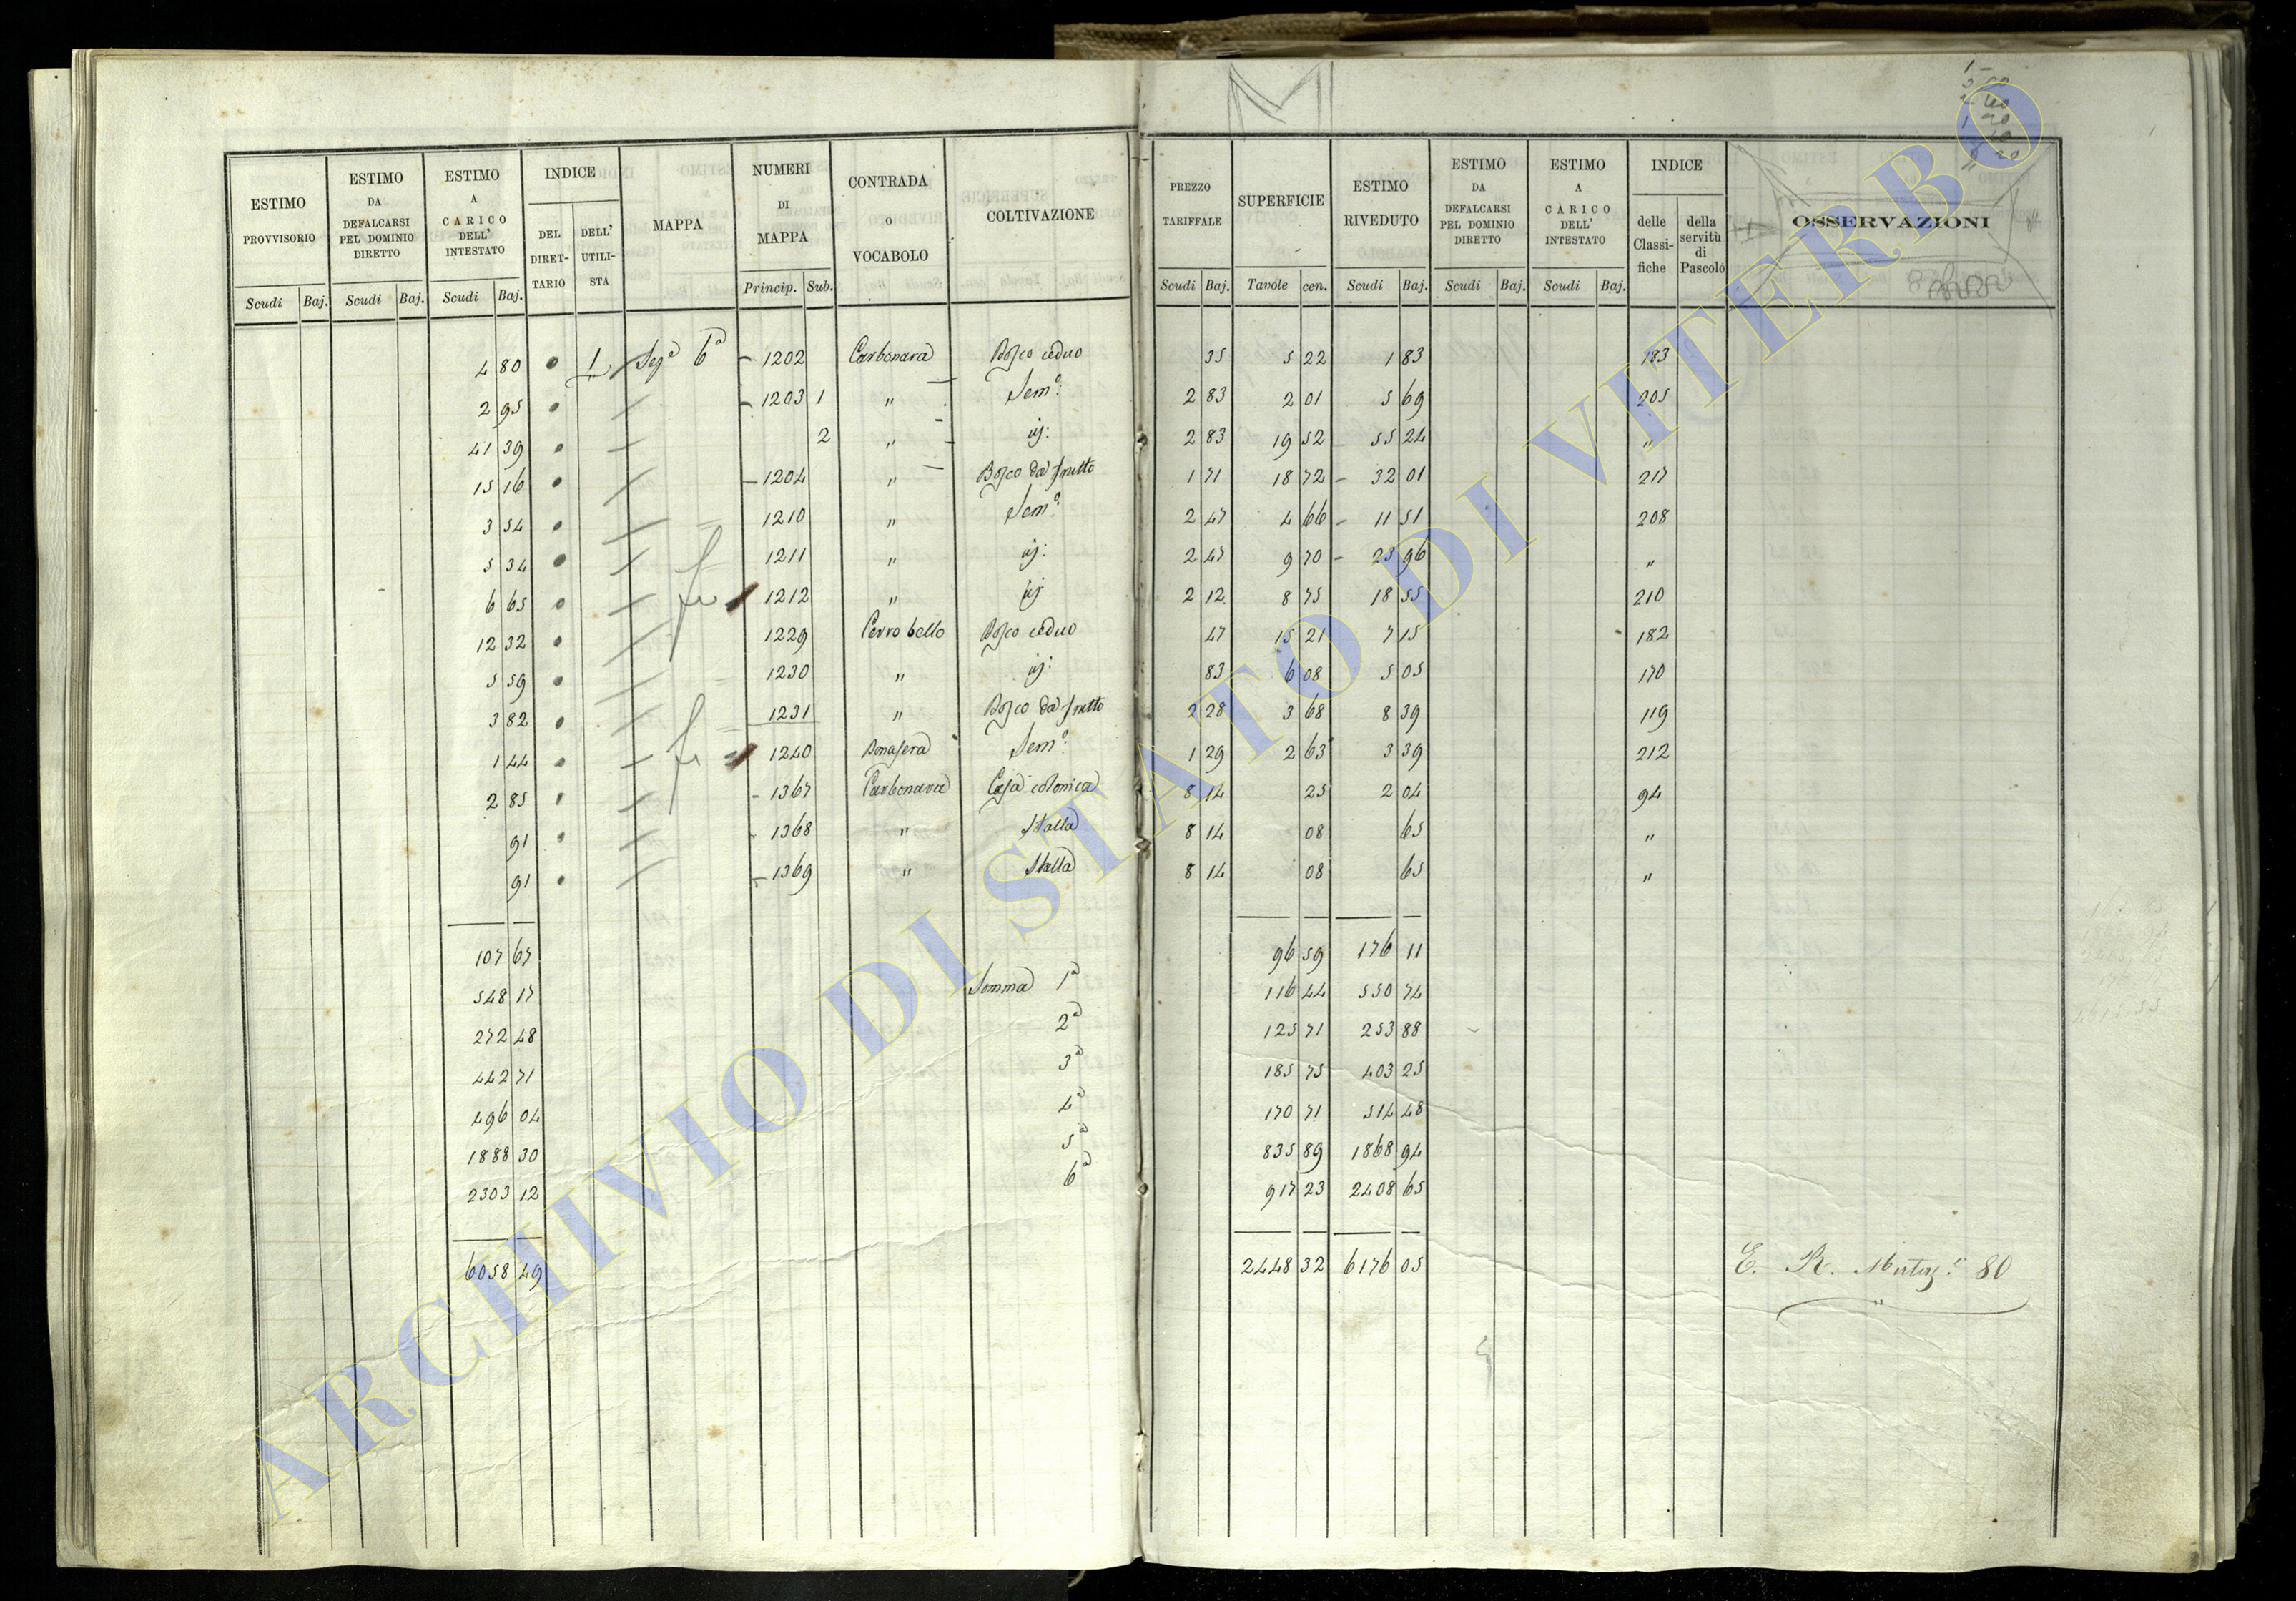 M
1 –
ESTIMO PROVVISORIO | ESTIMO DA DEFALCARSI PEL DOMINIO DIRETTO | ESTIMO A CARICO DELL' INTESTATO | INDICE | MAPPA | NUMERI DI MAPPA | CONTRADA O VOCABOLO | COLTIVAZIONE | PREZZO TARIFFALE | SUPERFICIE | ESTIMO RIVEDUTO | ESTIMO DA DEFALCARSI PEL DOMINIO DIRETTO | ESTIMO A CARICO DELL' INTESTATO | INDICE | OSSERVAZIONI
DEL DIRET-TARIO | DELL' UTILI-STA | delle Classi-fiche | della servitù di Pascolo
Scudi | Baj. | Scudi | Baj. | Scudi | Baj. | Princip. | Sub. | Scudi | Baj. | Tavole | cen. | Scudi | Baj. | Scudi | Baj. | Scudi | Baj.
4 80 | 1 | Segª 6ª | 1202 | Carbonara | Bosco ceduo | 35 | 5 22 | 1 83 | 183
2 95 | 1203 1 | " | Sem.º: | 2 83 | 2 01 | 5 69 | 205
41 39 | 2 | " | ij: | 2 83 | 19 52 | 55 24 | "
15 16 | 1204 | " | Bosco da frutto | 1 71 | 18 72 | 32 01 | 217
3 54 | 1210 | " | Sem.º: | 2 47 | 4 66 | 11 51 | 208
5 34 | 1211 | " | ij: | 2 47 | 9 70 | 23 96 | "
6 65 | 1212 | " | ij | 2 12 | 8 75 | 18 55 | 210
12 32 | 1229 | Cerro bello | Bosco ceduo | 47 | 15 21 | 7 15 | 182
5 59 | 1230 | " | ij: | 83 | 6 08 | 5 05 | 170
3 82 | 1231 | " | Bosco da frutto | 2 28 | 3 68 | 8 39 | 119
1 44 | 1240 | Bonasera | Sem.º: | 1 29 | 2 63 | 3 39 | 212
2 85 | 1367 | Carbonara | Casa colonica | 8 14 | 25 | 2 04 | 94
91 | 1368 | " | Stalla | 8 14 | 08 | 65 | "
91 | 1369 | " | Stalla | 8 14 | 08 | 65 | "
107 67 | 96 59 | 176 11
548 17 | Somma 1ª | 116 44 | 550 74
272 48 | 2ª | 125 71 | 253 88
442 71 | 3ª | 185 75 | 403 25
496 04 | 4ª | 170 71 | 514 48
1888 30 | 5ª | 835 89 | 1868 94
2303 12 | 6ª | 917 23 | 2408 65
6058 49 | 2448 32 | 6176 05 | E. R. 80
ARCHIVIO DI STATO DI VITERBO